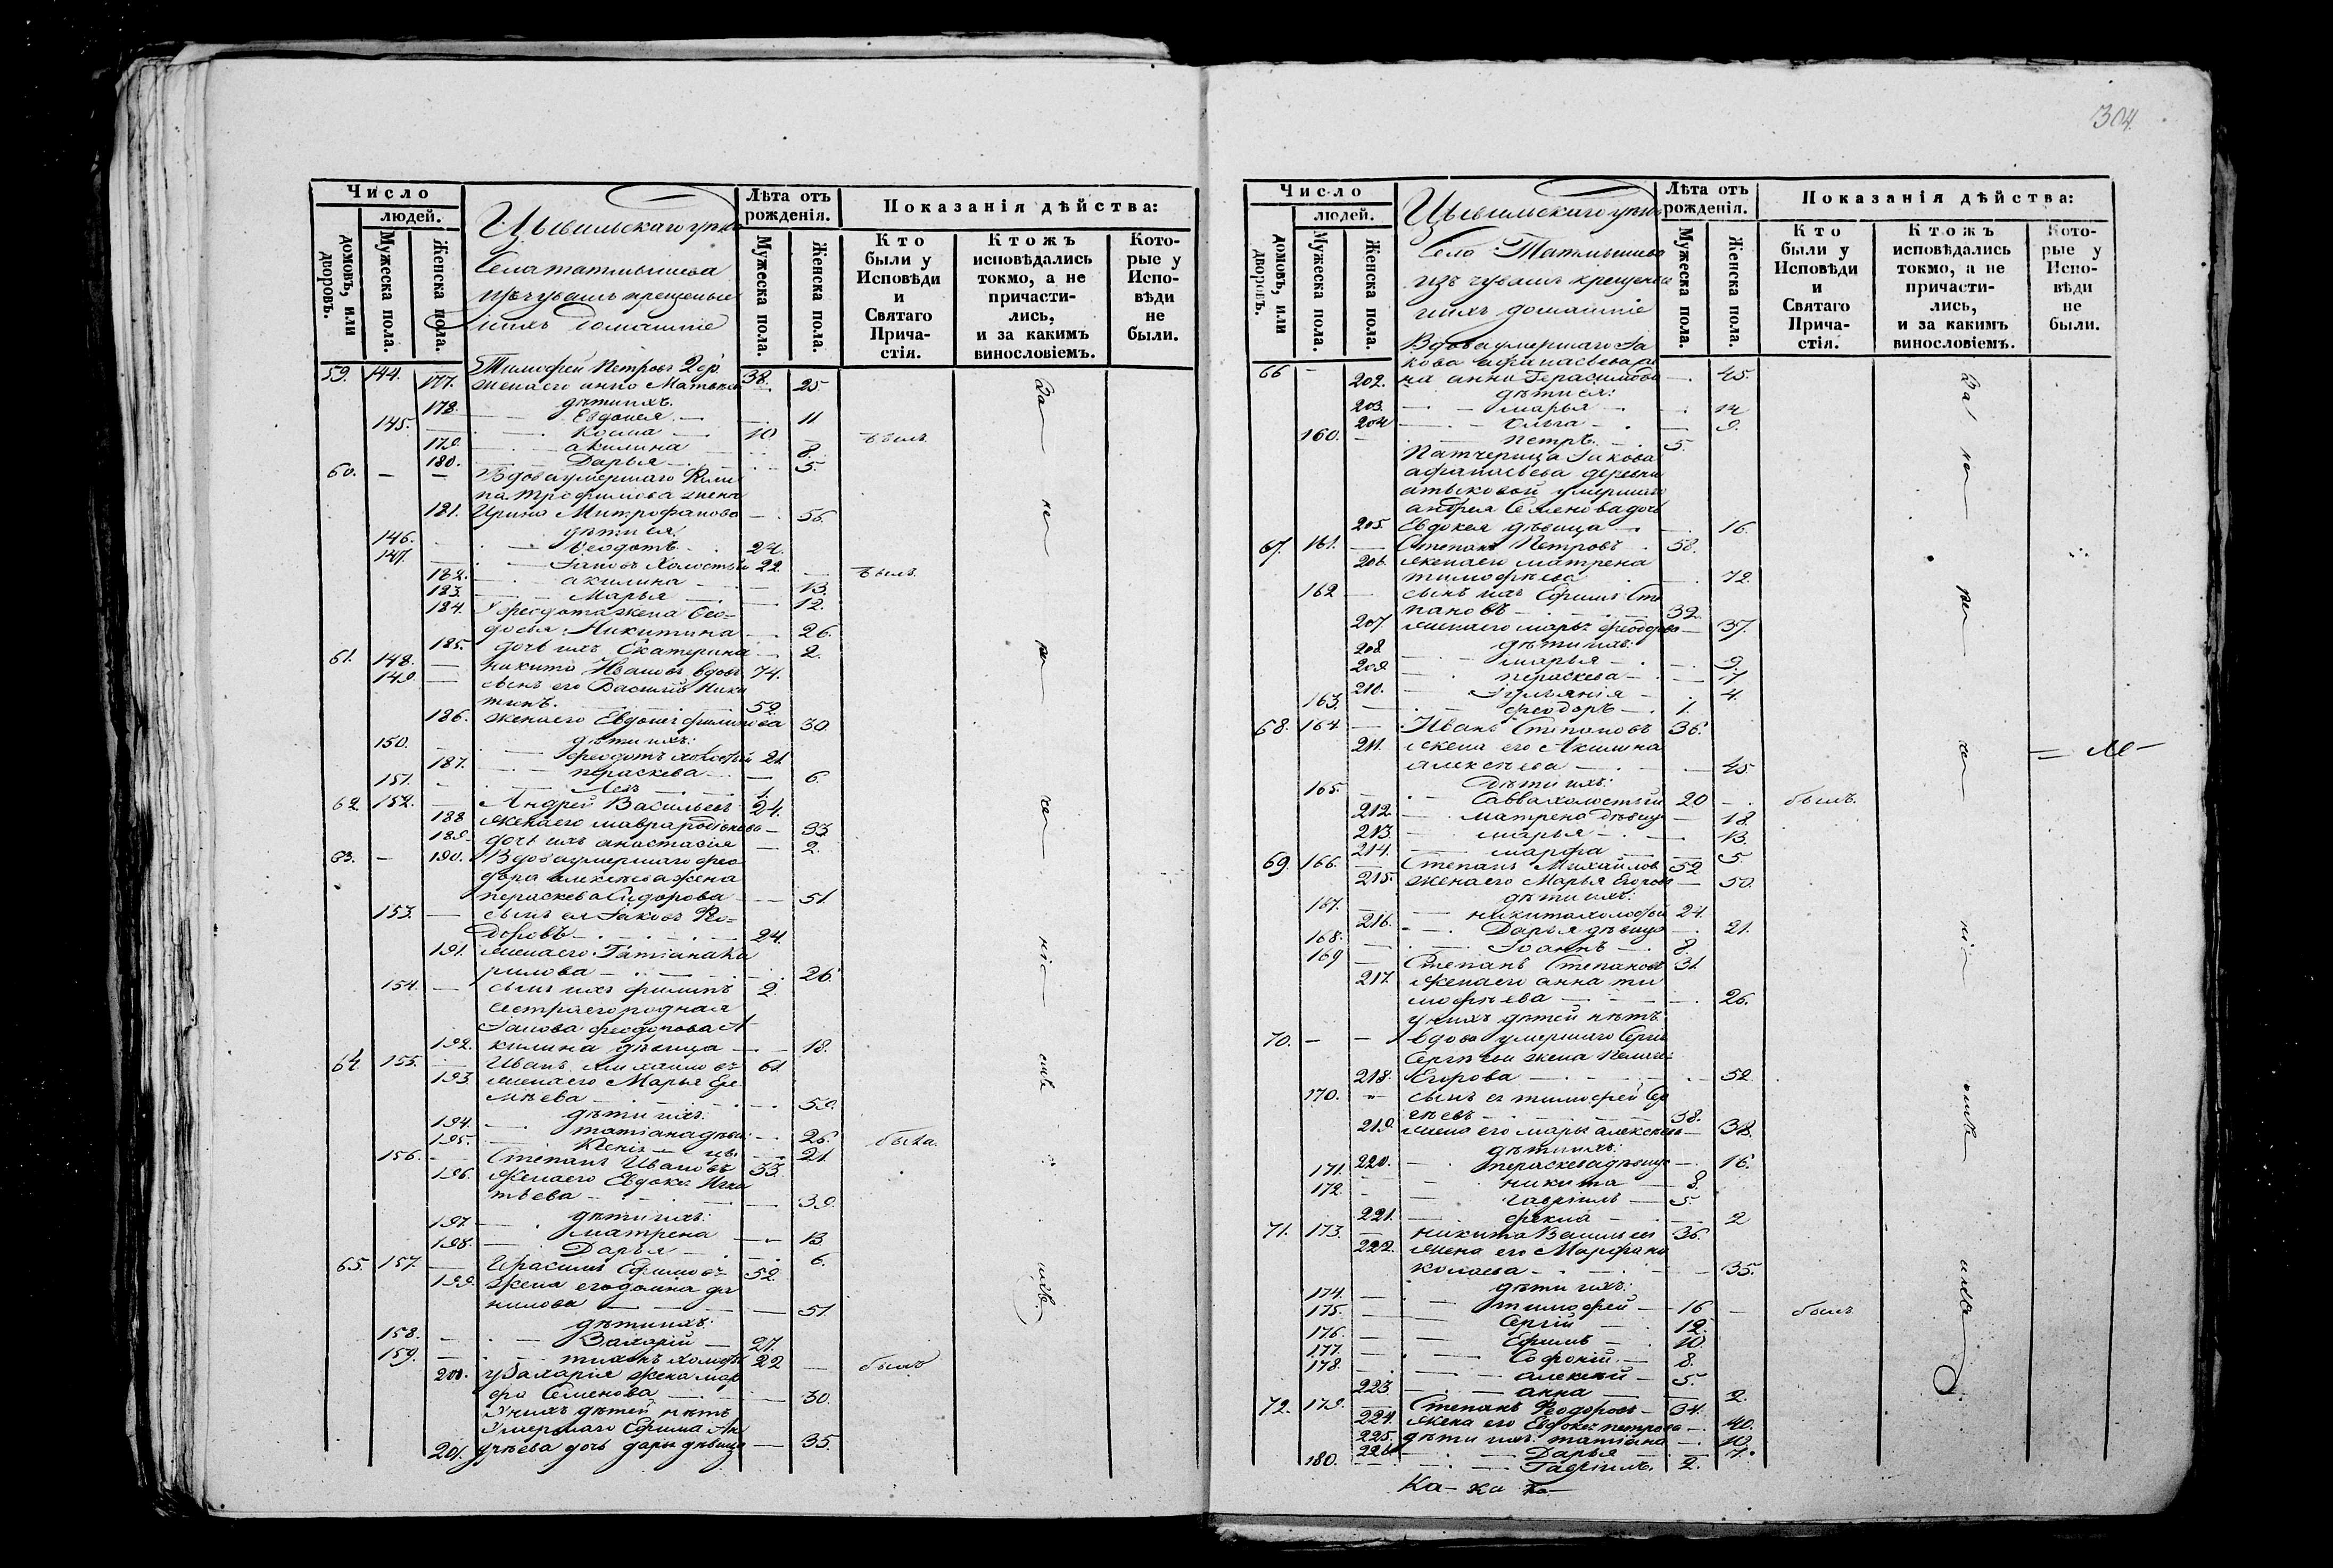 304.
Число
людей.
домовъ, или дворовъ.
Мужеска пола.
Женска пола.
Цывильскаго уѣзда
Села татмышева
изъ чувашъ крещеные
и ихъ домашніе
Лѣта отъ рожденія.
Мужеска пола.
Женска пола.
Показанія дѣйства:
Кто были у Исповѣди и Святаго Прича-стія.
Ктожъ исповѣдались токмо, а не причасти-лись, и за какимъ винословіемъ.
Кото-рые у Испо-вѣди не были.
59. 144. Тимофей Петровъ 38.
177. жена его анна 25
дѣти ихъ:
178. Евдокея 11
145. Косма 10 былъ
179. акилина 8.
180. Дарья 5.
60. Вдова умершаго
Трофимова жена
181. Ирина Митрофанова 56.
дѣти ея:
146. Феодотъ 24.
147. Іаковъ холостый 22. былъ
182. акилина 13.
183. Марья 12.
184. У феодота жена Фео-
досья Никитина 26.
185. дочь ихъ Екатерина 2.
61. 148. никита Ивановъ вдовъ 74.
149. сынъ его Василій Ники
тинъ. 52.
186. жена его Евдокея филипова 30.
дѣти ихъ:
150. феодотъ холостый 21
187. параскева 6.
151. 1.
62. 152. Андрей Васильевъ 24.
188 жена его мавра родіонова 33
189. дочь ихъ анастасія 2.
63. 190. Вдова умершаго фео
дора алексѣева жена
параскева Сидорова 51
153. сынъ ея Іаковъ Фео-
доровъ 24.
191. жена его Татіана Ка
рилова 26.
154. сынъ ихъ филипъ 2.
сестра его родная
Іакова феодорова А
192. килина дѣвица 18.
64. 155. Иванъ михаиловъ 61.
193. жена его Марья
59.
дѣти ихъ:
194. татіана дѣвица 26. была.
195. Ксенія 21.
156. Степанъ Ивановъ 33.
196. жена его Евдокея Игна
тьева 39.
дѣти ихъ:
197. матрена 13
198. Дарья 6.
65. 157. Герасимъ Ефимовъ 52.
199. жена его домна да
нилова 51
дѣти ихъ:
158. Захарій 27.
159. тихонъ холостый 22 былъ
200. у Захарія жена мар
фа Семенова 30.
У нихъ дѣтей нѣтъ
Умершаго Ефима Ан
201. дрѣева дочь дарья дѣвица 35.
Число
людей.
домовъ, или дворовъ.
Мужеска пола.
Женска пола.
Цывильскаго уѣзда
Села Татмышева
изъ чувашъ крещеные
и ихъ домашніе
Лѣта отъ рожденія.
Мужеска пола.
Женска пола.
Показанія дѣйства:
Кто были у Исповѣди и Святаго Прича-стія.
Ктожъ исповѣдались токмо, а не причасти-лись, и за какимъ винословіемъ.
Кото-рые у Испо-вѣди не были.
Вдова умершаго Іа
кова афанасьева же
66 202. на анна Герасимова 45.
дѣти ея:
203. марья 14
204 ольга 9.
160. петръ. 5.
Патчерица Іакова
афанасьева деревни
атыковой умершаго
андрея Семенова дочь
205. Евдокея дѣвица 16.
67. 161. Степанъ Петровъ 58.
206. жена его матрена
тимофѣева 72.
162 сынъ ихъ Ефимъ Сте
пановъ 32.
207. жена его марья феодорова 37.
дѣти ихъ:
208 марья 9.
209. параскева 7
210. Іуліанія 4.
163. феодоръ 1.
68. 164 Иванъ Степановъ 36.
211. жена его Акилина
алексѣева 45.
дѣти ихъ:
165. Савва холостый 20 былъ.
212. матрена дѣвица 18.
213. марья 13.
214. марфа 5.
69. 166. Степанъ Михайловъ 52
215. жена его Марья Егорова 50.
дѣти ихъ:
167. никита холостый 24.
216. Дарья дѣвица 21.
168. Іоаннъ 8.
169 Степанъ Степановъ 31.
217. жена его анна ти
мофѣева 26.
у нихъ дѣтей нѣтъ.
70. вдова умершаго Сергія
Сергѣева жена Пелагея
218. Егорова 52.
170. сынъ ея тимофей Сер
гѣевъ 38.
219. жена его марья алексѣева 38.
дѣти ихъ:
220. параскева дѣвица 16.
171. никита 8.
172. гавріилъ 5.
221. фекла 2
71. 173. никита Васильевъ 36.
222. жена его Марфа ни
колаева 35.
дѣти ихъ:
174. тимофей 16 былъ
175. Сергій 12.
176. Ефимъ 10.
177. Софоній 8.
178. алексѣй 5.
223. анна 2.
72. 179. Степанъ Феодоровъ 34.
224. жена его Евдокея петрова 40.
225. дѣти ихъ: татіана 10.
226 Дарья 7.
180. Гавріилъ. 2.